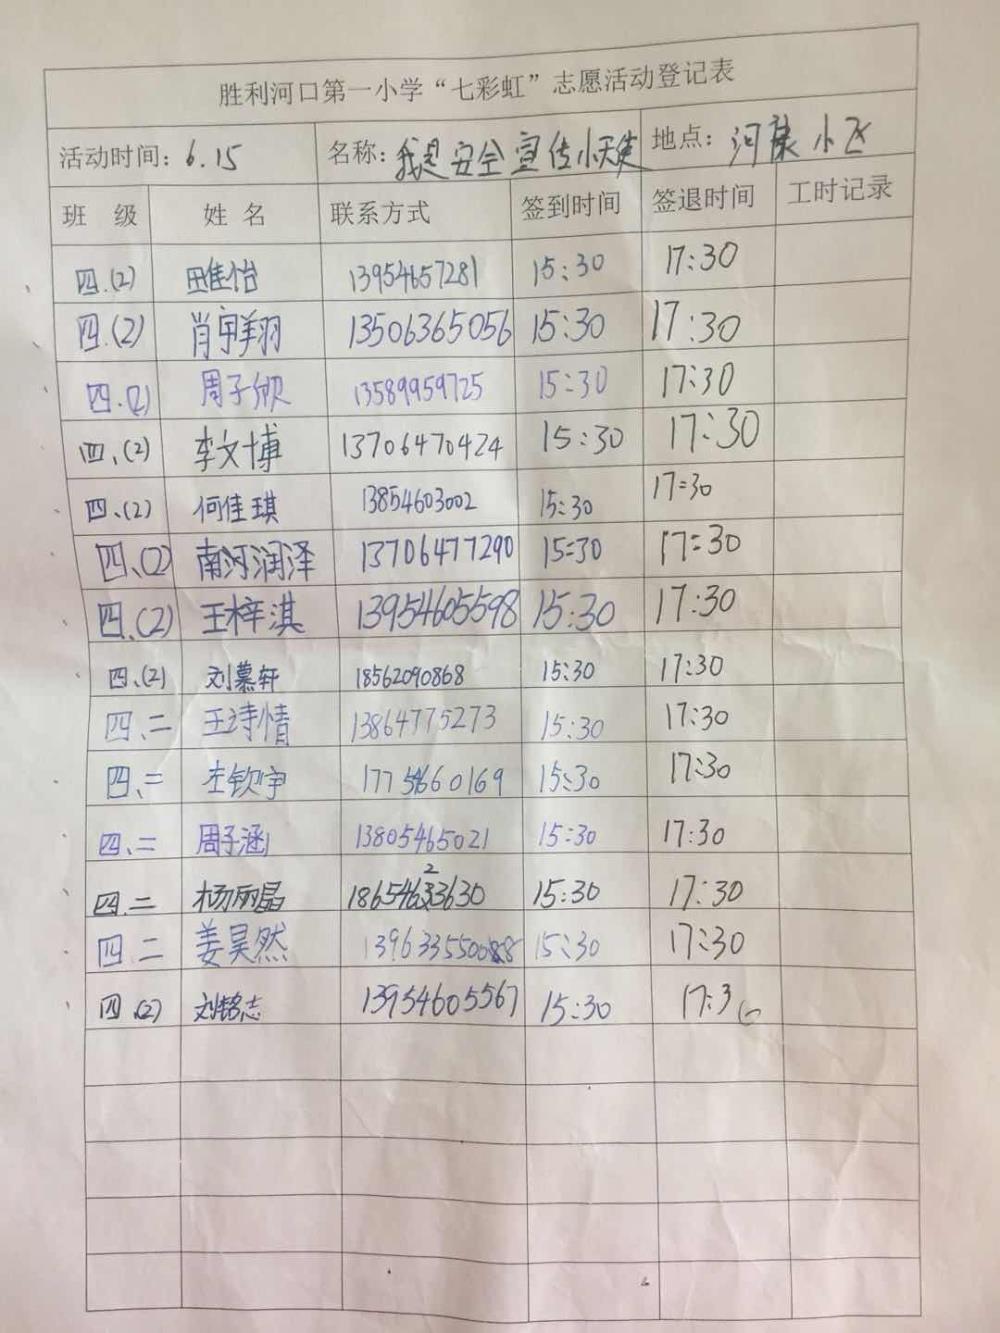 胜利河口第一小学“七彩虹”志愿活动登记表
活动时间：6.15 名称：我是安全宣传小天使 地点：河 小区
班 级 姓 名 联系方式 签到时间 签退时间 工时记录
四.(2) 田雅怡 13954657281 15:30 17:30
四.(2) 肖宇翔 13506365056 15:30 17:30
四.(2) 周子欣 13589959725 15:30 17:30
四、(2) 李文博 13706470424 15:30 17:30
四、(2) 何佳琪 13854603002 15:30 17:30
四、(2) 南河润泽 13706477290 15:30 17:30
四、(2) 王梓淇 13954605598 15:30 17:30
四、(2) 刘慕轩 18562090868 15:30 17:30
四、二 王诗情 13864775273 15:30 17:30
四、二 左钦宇 17754660169 15:30 17:30
四、二 周子涵 13805465021 15:30 17:30
四.二 杨丽晶 15:30 17:30
四 二 姜昊然 15:30 17:30
四.(2) 刘铭志 13954605567 15:30 17:30